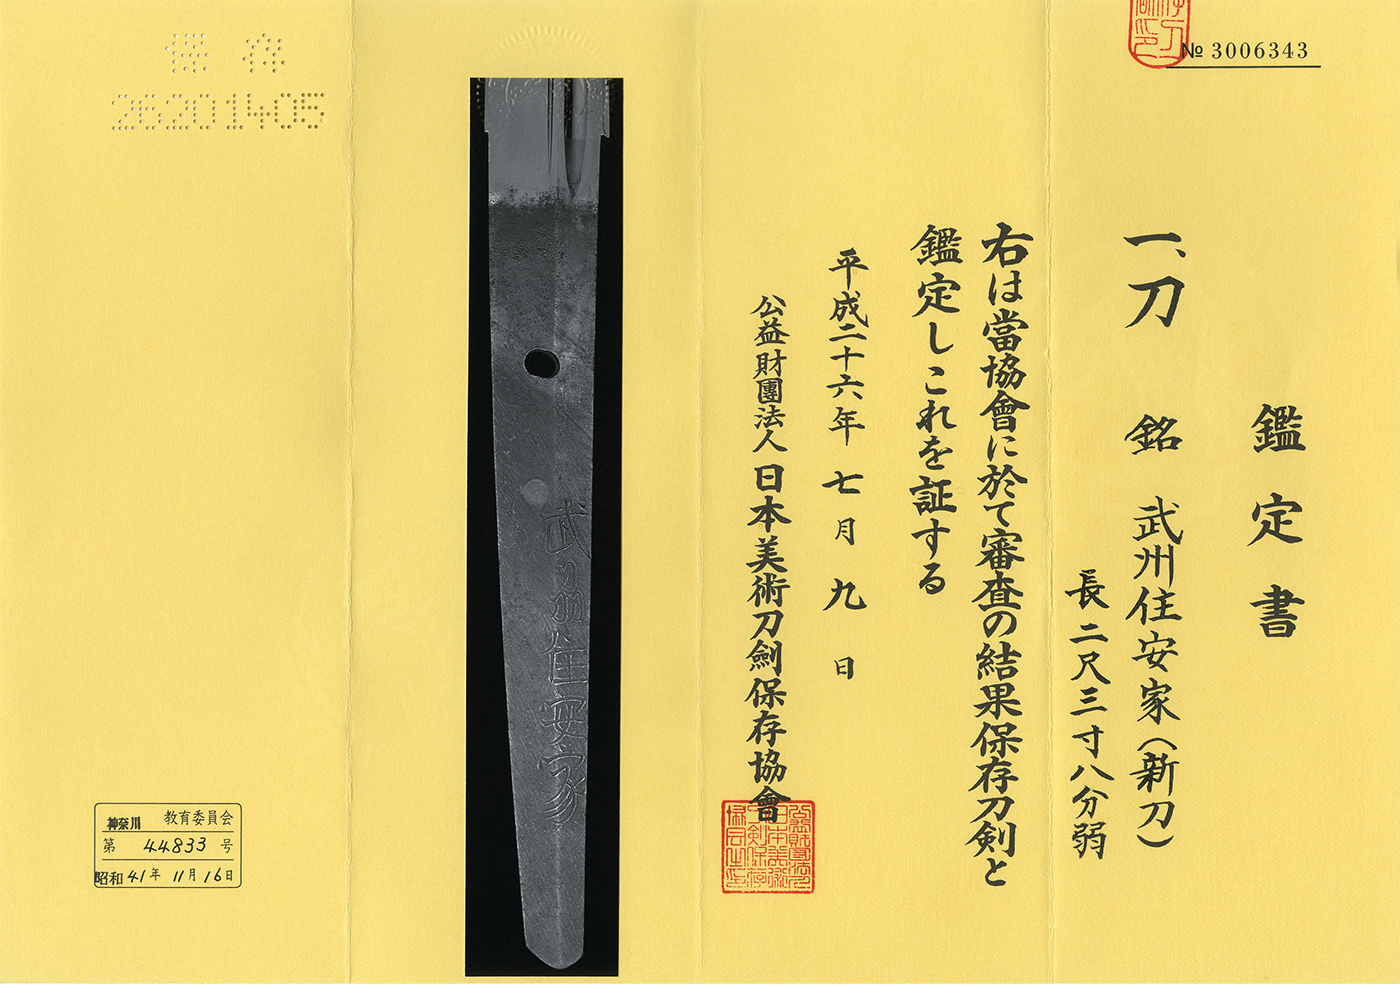 № 3006343
鑑定書
一、刀 銘 武州住安家(新刀)
長二尺三寸八分弱
右は當協會に於て審査の結果保存刀剣と
鑑定しこれを証する
平成二十六年 七月 九日
公益財團法人 日本美術刀劍保存協會
武州住安家
保存
26201405
神奈川 教育委員会
第 44833 号
昭和 41年 11月 16日